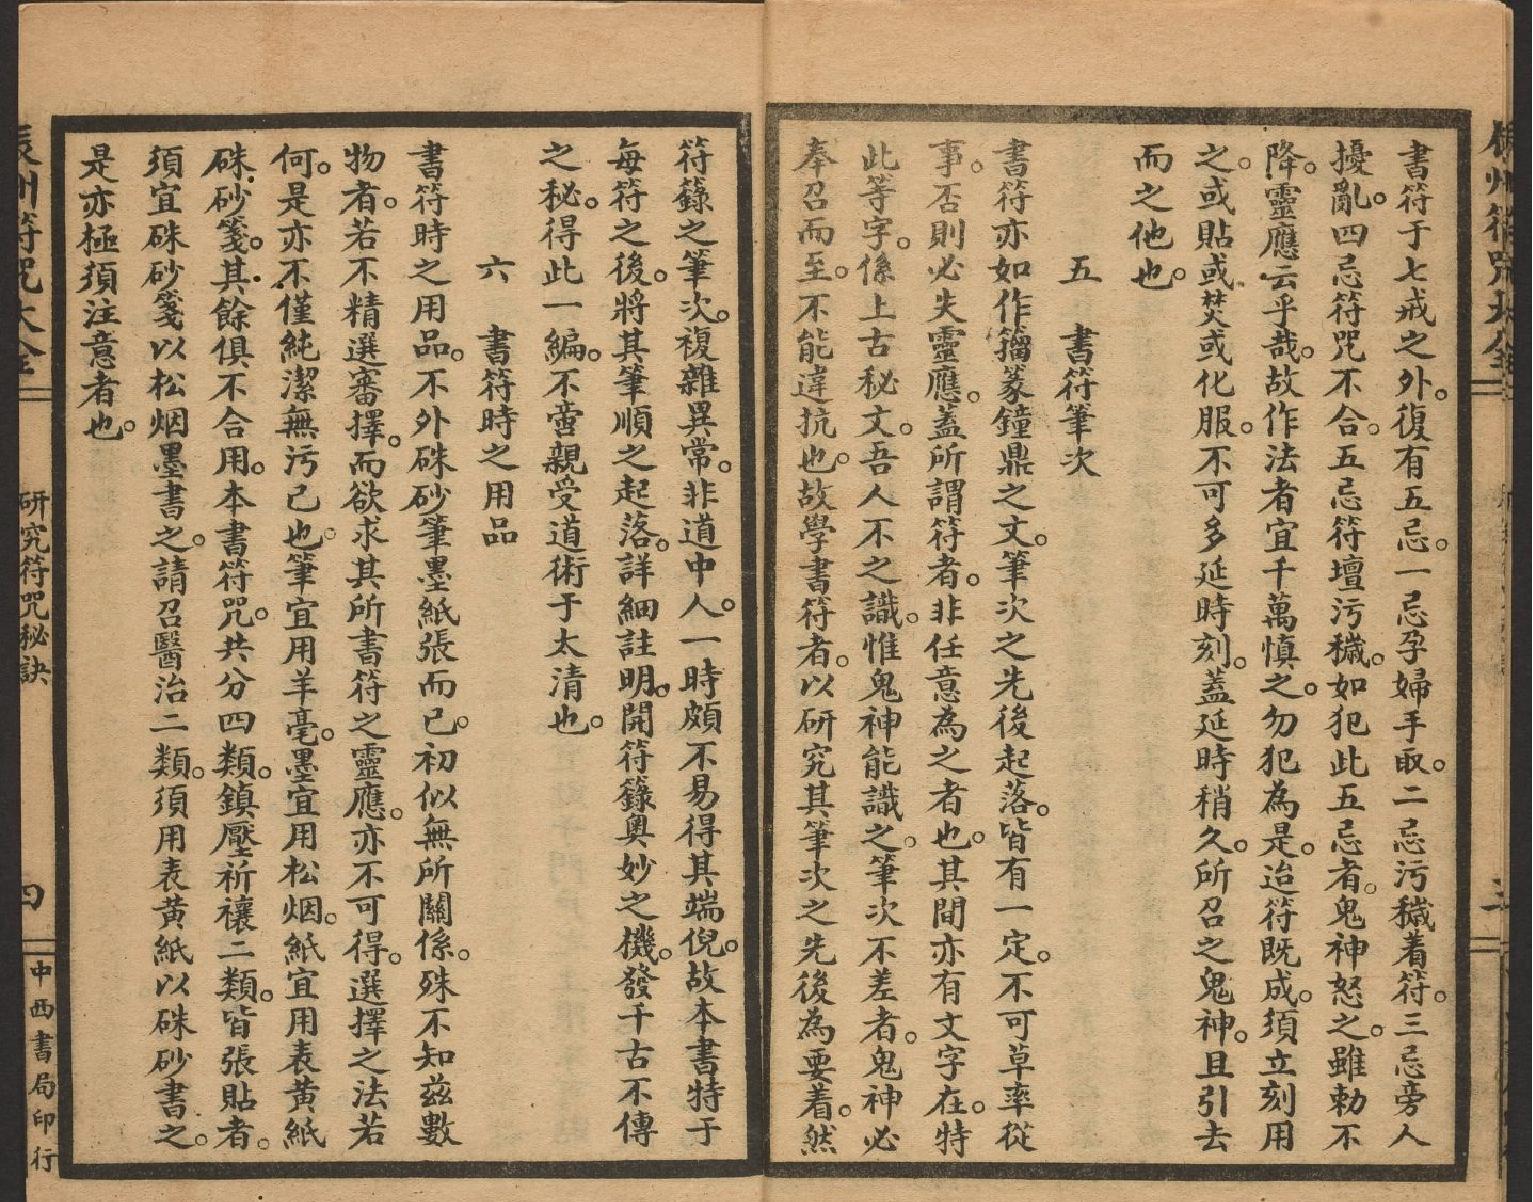 書符于七戒之外。復有五忌。一忌孕婦手取。二忌污穢着符。三忌旁人
擾亂。四忌符咒不合。五忌符壇污穢。如犯此五忌者。鬼神怒之。雖勅不
降。靈應云乎哉。故作法者宜千萬慎之。勿犯為是。迨符既成。須立刻用
之。或貼或焚或化服。不可多延時刻。蓋延時稍久。所召之鬼神。且引去
而之他也。
五 書符筆次
書符亦如作籀篆鐘鼎之文。筆次之先後起落。皆有一定。不可草率從
事。否則必失靈應。蓋所謂符者。非任意為之者也。其間亦有文字在。特
此等字。係上古秘文。吾人不之識。惟鬼神能識之。筆次不差者。鬼神必
奉召而至。不能違抗也。故學書符者。以研究其筆次之先後為要着。然
符籙之筆次。複雜異常。非道中人。一時頗不易得其端倪。故本書特于
每符之後。將其筆順之起落。詳細註明。開符籙奧妙之機。發千古不傳
之秘。得此一編。不啻親受道術于太清也。
六 書符時之用品
書符時之用品。不外硃砂筆墨紙張而已。初似無所關係。殊不知茲數
物者。若不精選審擇。而欲求其所書符之靈應。亦不可得。選擇之法若
何。是亦不僅純潔無污已也。筆宜用羊毫。墨宜用松烟。紙宜用表黃紙
硃砂箋。其餘俱不合用。本書符咒。共分四類。鎮壓祈禳二類。皆張貼者。
須宜硃砂箋以松烟墨書之。請召醫治二類。須用表黃紙以硃砂書之。
是亦極須注意者也。
辰州符咒大全
研究符咒秘訣
四
中西書局印行